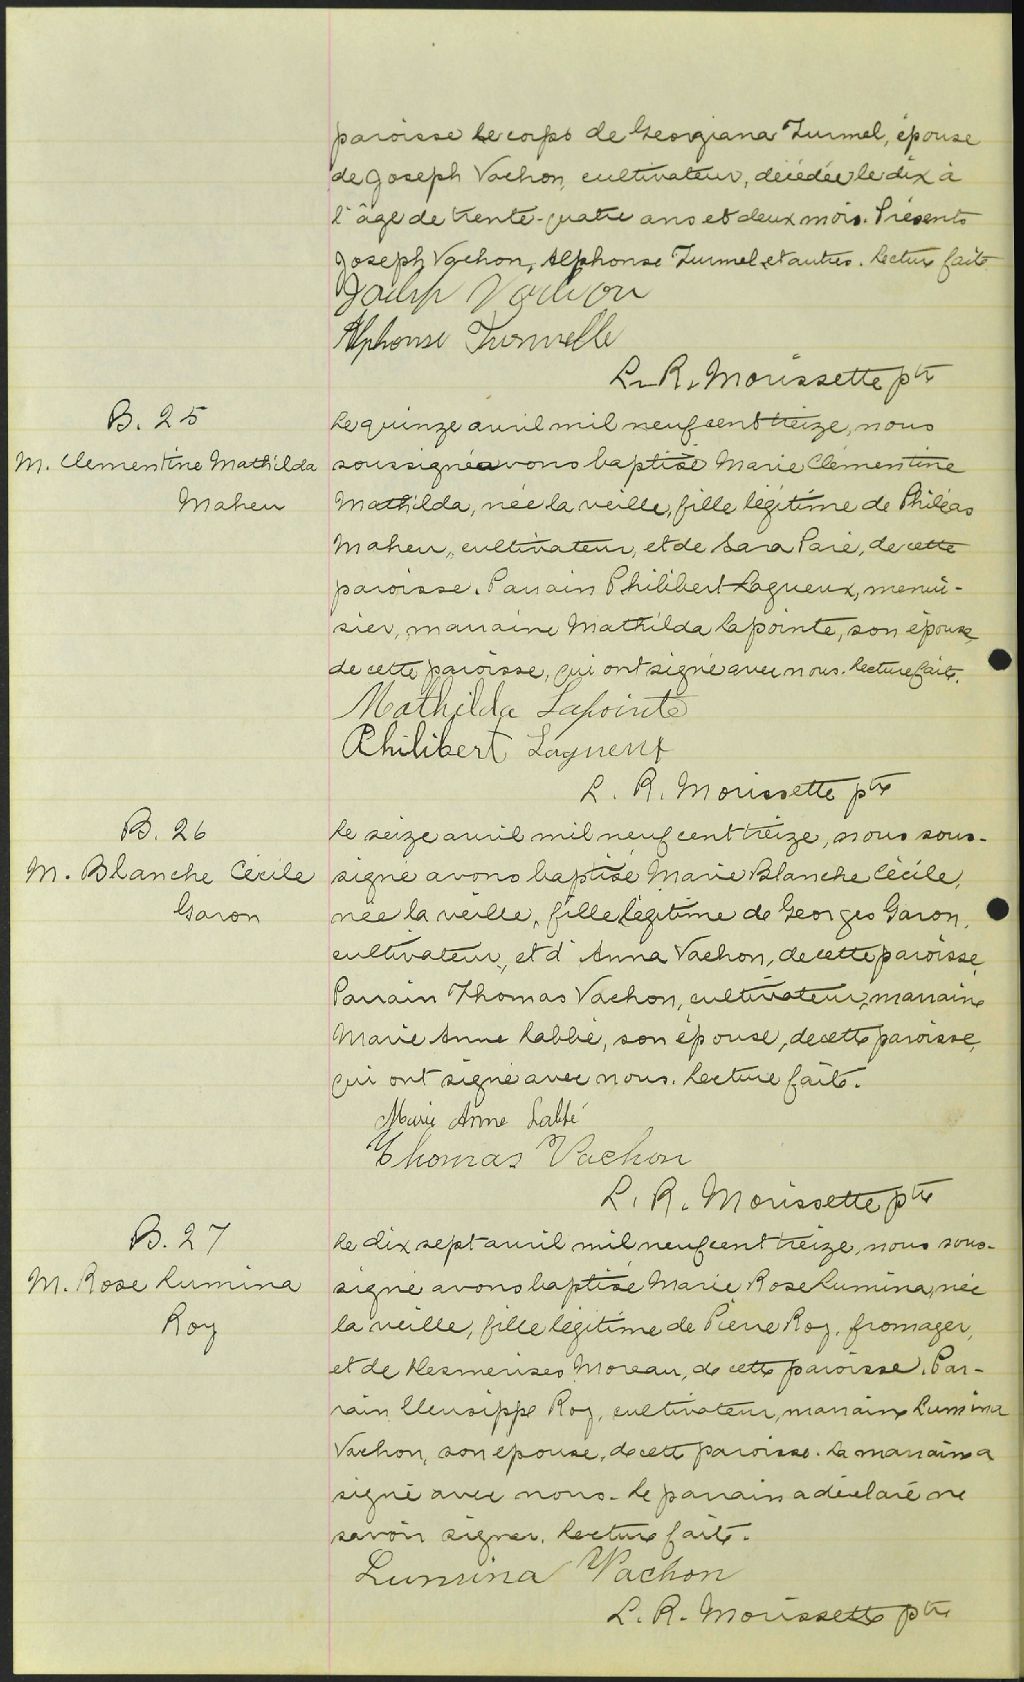 paroisse le corps de Georgiana Turmel, épouse
de Joseph Vachon, cultivateur, décédée le dix à
l'âge de trente-quatre ans et deux mois. Présents
Joseph Vachon, Alphonse Turmel et autres. Lecture faite
Joseph Vachon
Alphonse Turmelle
L. R. Morissette ptre
B. 25
M. Clementine Mathilda
Maheu
Le quinze avril mil neuf cent treize, nous
soussigné avons baptisé Marie Clémentine
Mathilda, née la veille, fille légitime de Philéas
Maheu, cultivateur, et de Sara Paré, de cette
paroisse. Parrain Philibert Lagueux, menui-
sier, marraine Mathilda Lapointe, son épouse,
de cette paroisse, qui ont signé avec nous. Lecture faite.
Mathilda Lapointe
Philibert Lagueux
L. R. Morissette ptre
B. 26
M. Blanche Cécile
Garon
Le seize avril mil neuf cent treize, nous sous-
signé avons baptisé Marie Blanche Cécile,
née la veille, fille légitime de Georges Garon,
cultivateur, et d'Anna Vachon, de cette paroisse.
Parrain Thomas Vachon, cultivateur, marraine
Marie Anne Labbé, son épouse, de cette paroisse,
qui ont signé avec nous. Lecture faite.
Marie Anne Labbé
Thomas Vachon
L. R. Morissette ptre
B. 27
M. Rose Lumina
Roy
Le dix sept avril mil neuf cent treize, nous sous-
signé avons baptisé Marie Rose Lumina, née
la veille, fille légitime de Pierre Roy, fromager,
et de Desmerises Moreau, de cette paroisse. Par-
rain Uleusippe Roy, cultivateur, marraine Lumina
Vachon, son épouse, de cette paroisse. La marraine a
signé avec nous. Le parrain a déclaré ne
savoir signer. Lecture faite.
Lumina Vachon
L. R. Morissette ptre